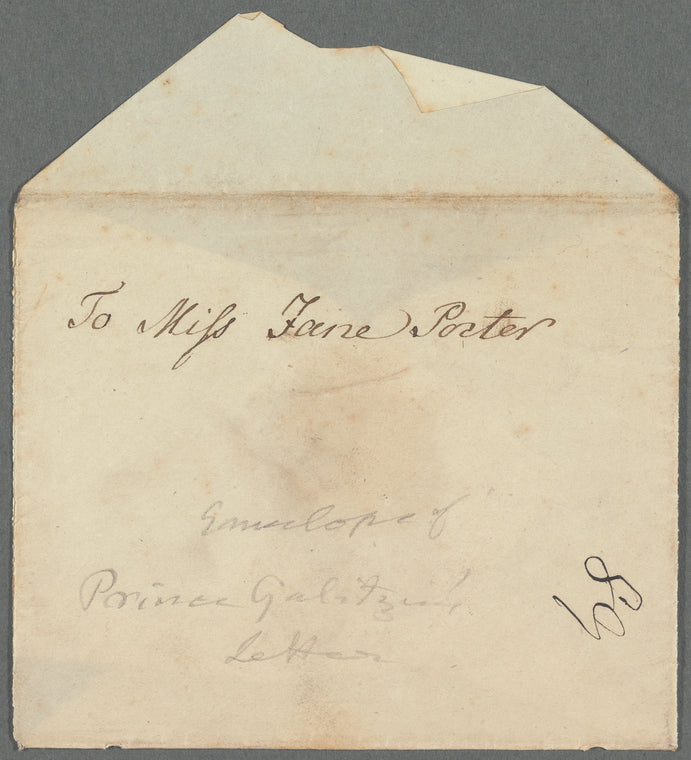 To Miſs Jane Porter
Envelope of
Prince Galitzin's
Letter